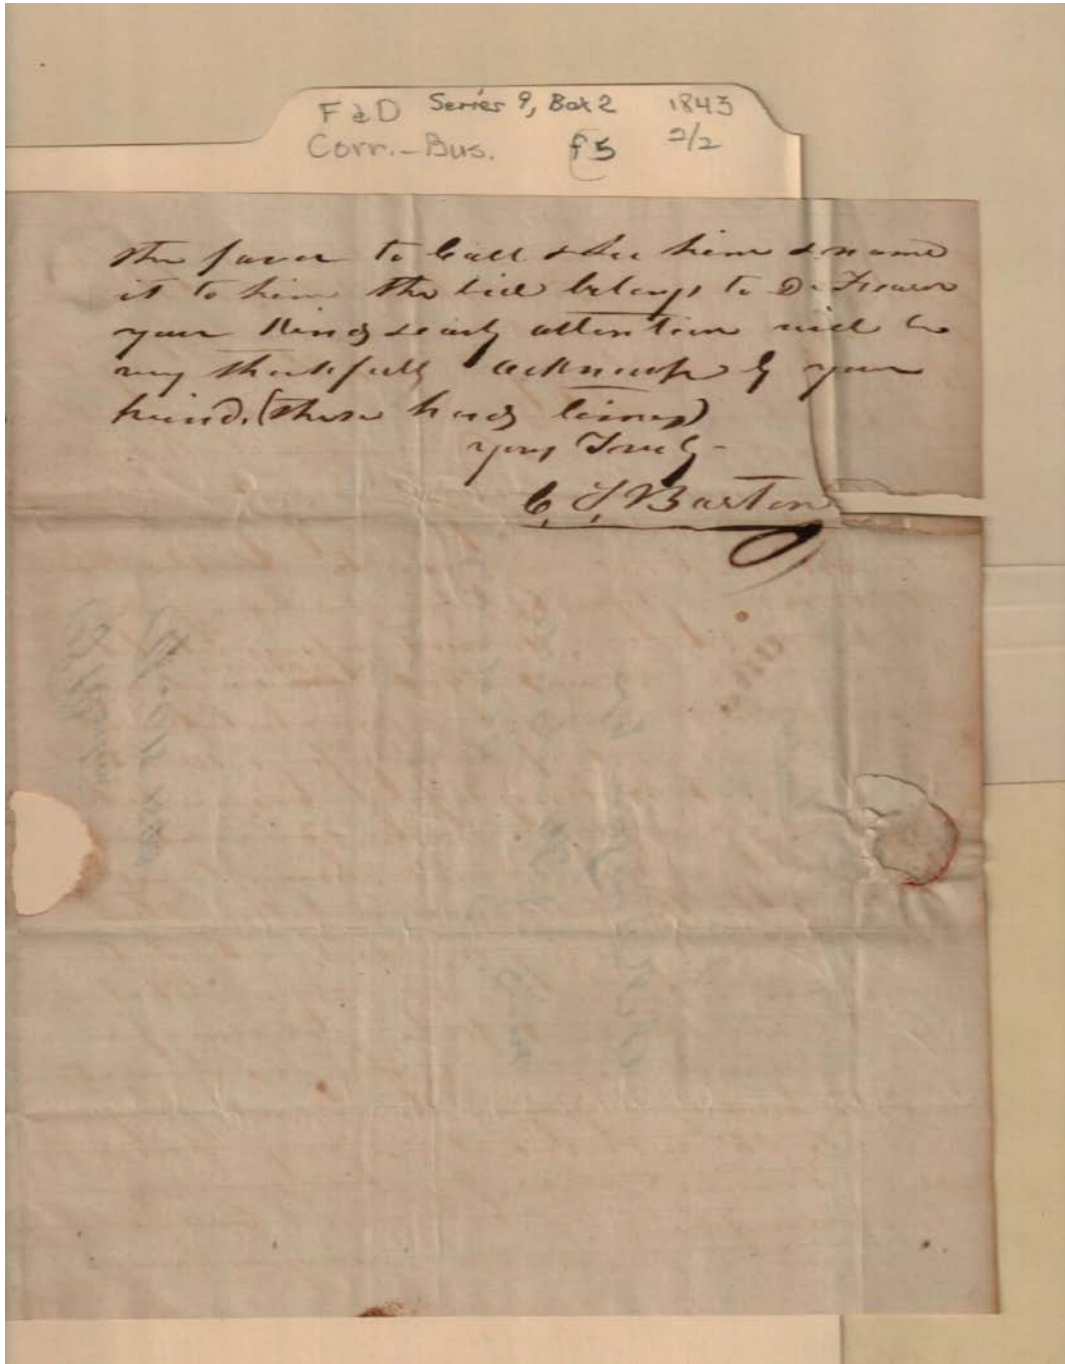 F & D Series 9, Box 2 1843
Corr.-Bus. f5 2/2
the favor to Call & See him & name
it to him the bill belongs to Dr. Fearn
your kind & early attention will be
very thankfully acknowg by your
friend. (these hard times)
yours Truly -
C. S. Barton